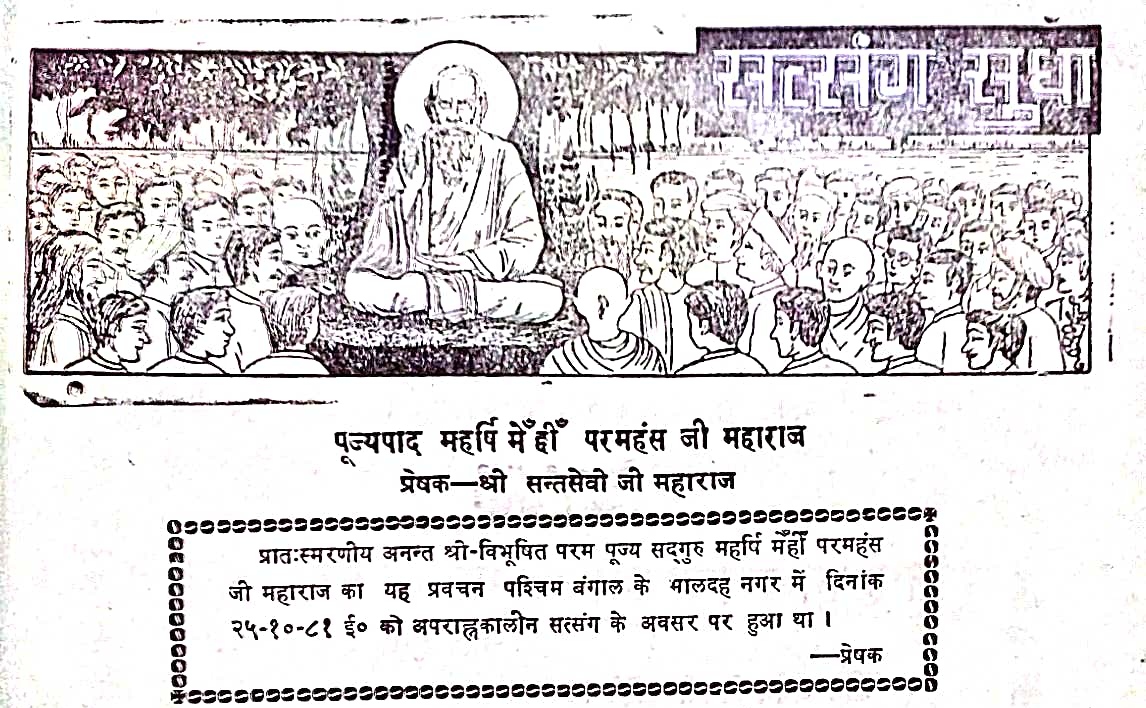 सत्संग सुधा
पूज्यपाद महर्षि मेँहीँ परमहंस जी महाराज
प्रेषक—श्री सन्तसेवी जी महाराज
प्रातःस्मरणीय अनन्त श्री-विभूषित परम पूज्य सद्गुरु महर्षि मेँहीँ परमहंस
जी महाराज का यह प्रवचन पश्चिम बंगाल के मालदह नगर में दिनांक
२५-१०-८१ ई० को अपराह्नकालीन सत्संग के अवसर पर हुआ था ।
—प्रेषक